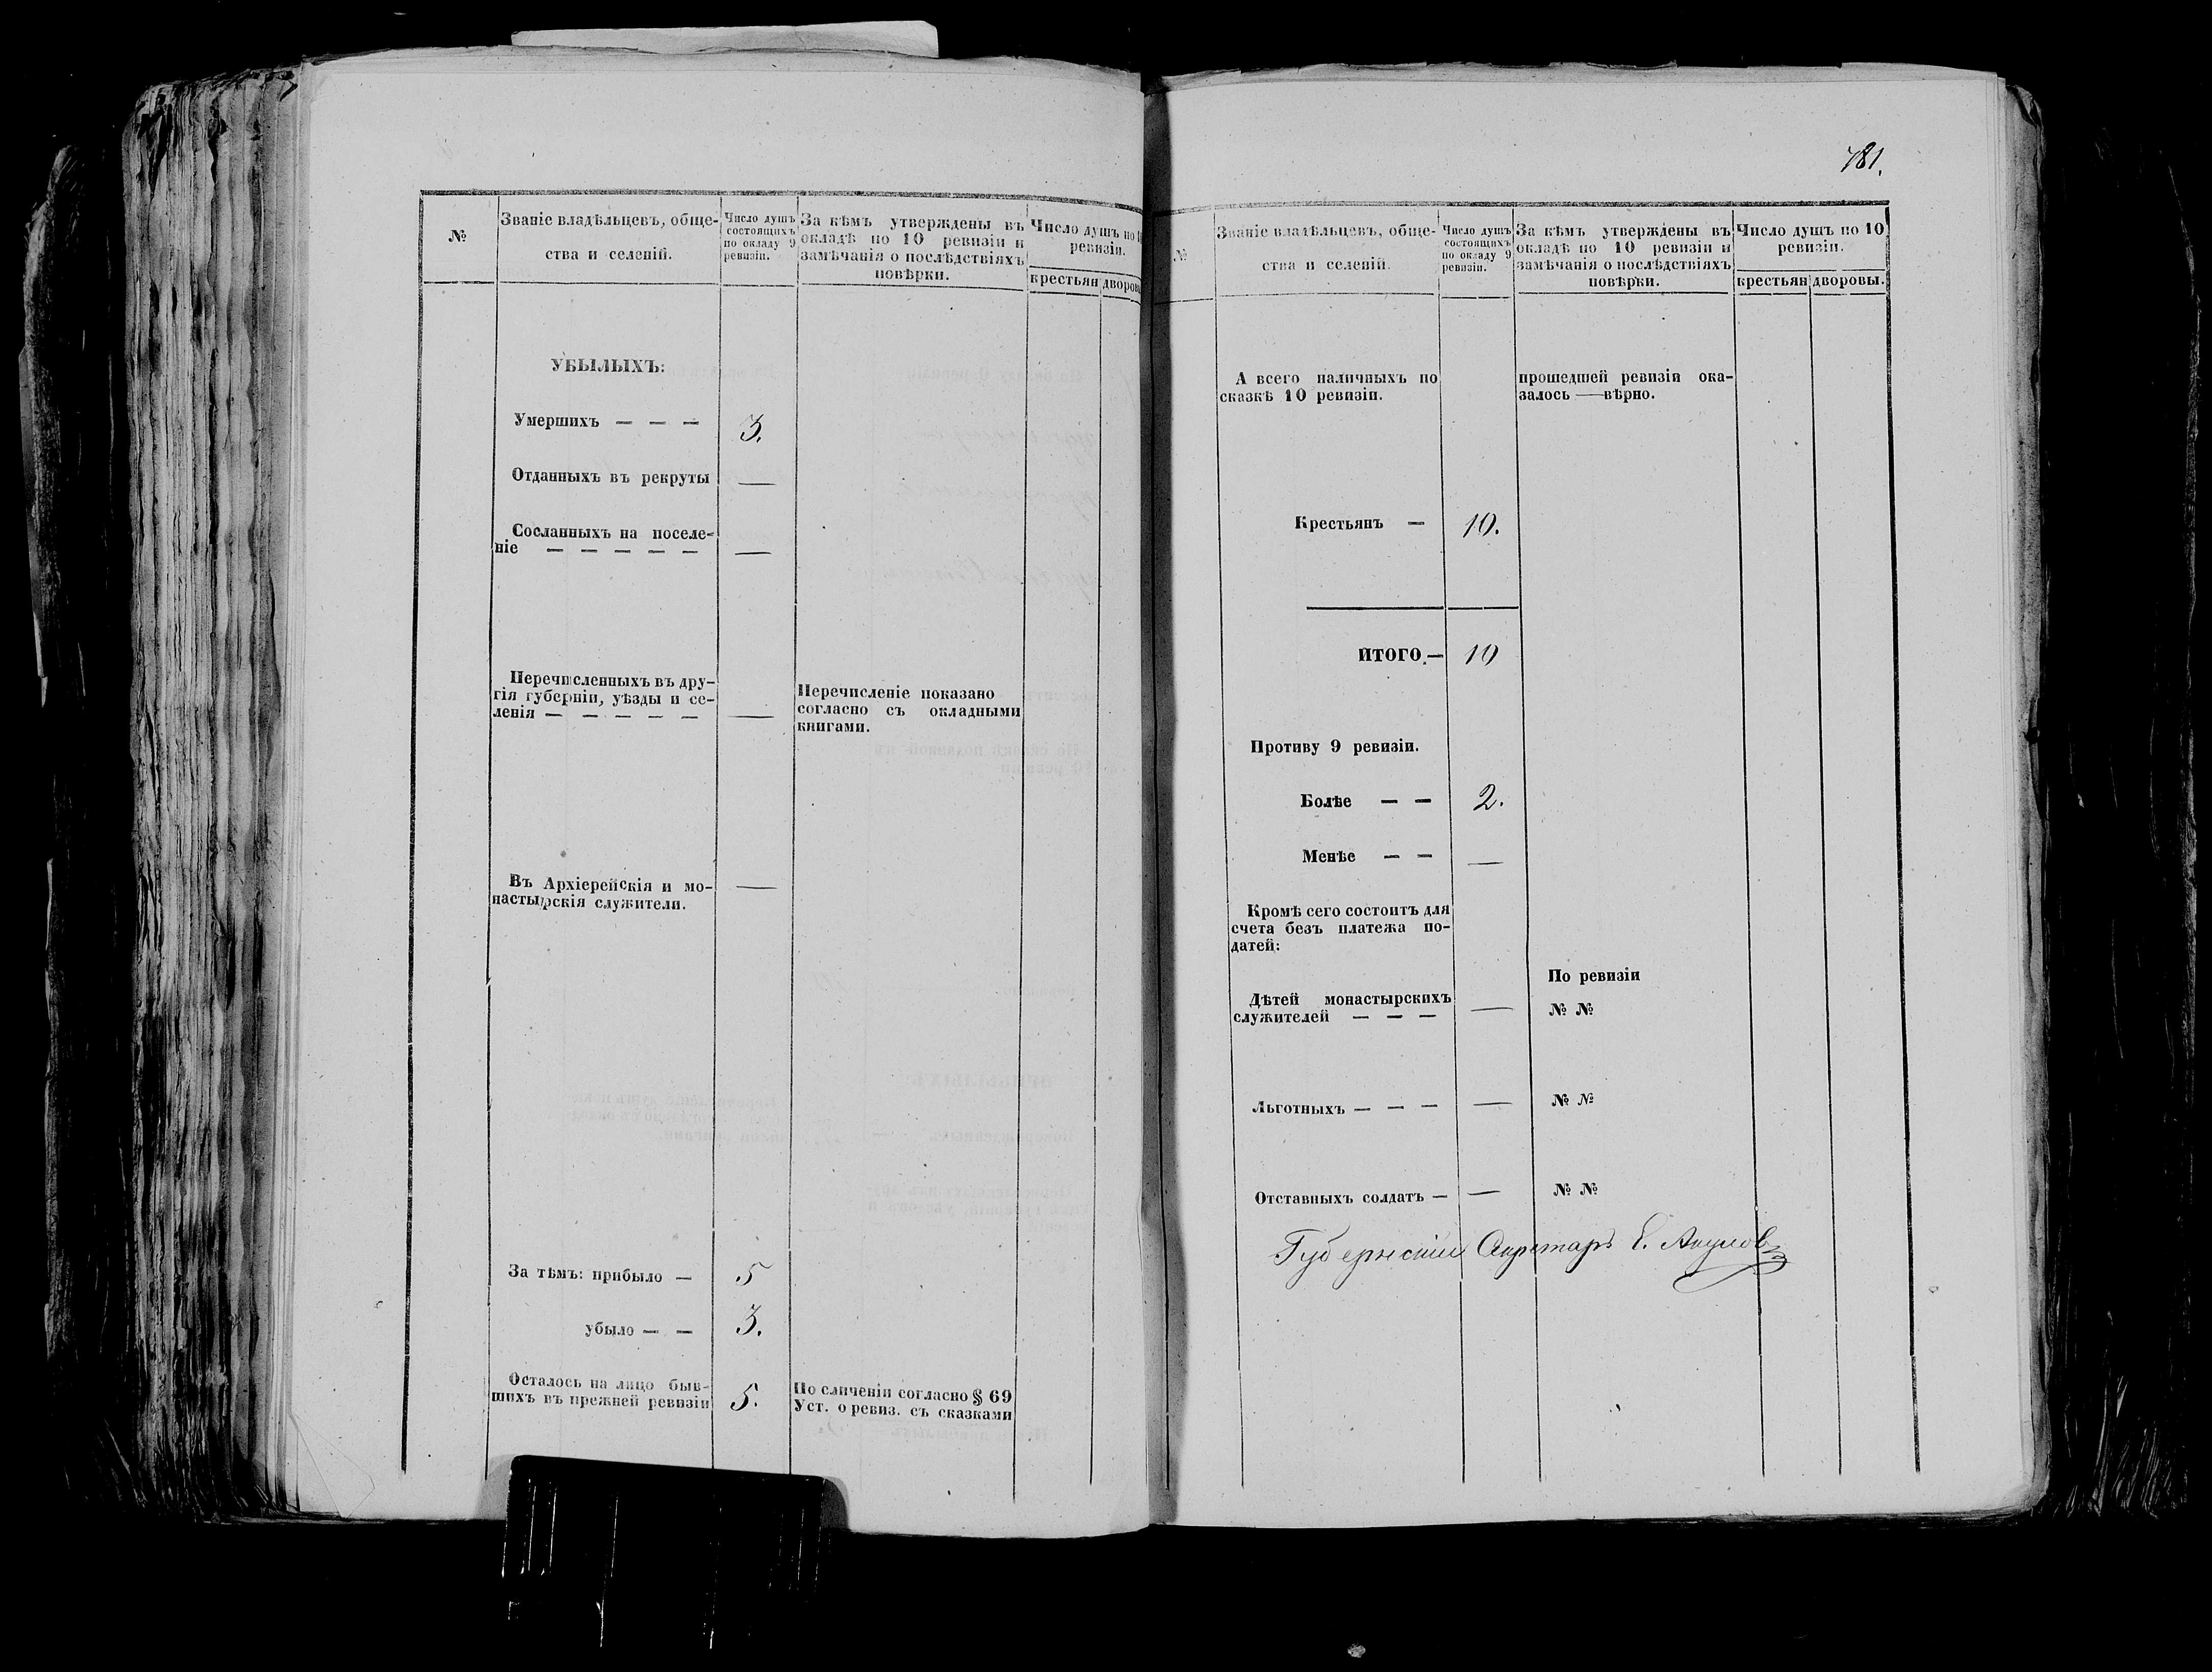 №
Званіе владѣльцевъ, обще-
ства и селеній.
Число душъ
состоящихъ
по окладу 9
ревизіи.
За кѣмъ утверждены въ
окладѣ по 10 ревизіи и
замѣчанія о послѣдствіяхъ
повѣрки.
Число душъ по 10
ревизіи.
крестьян
дворовы
УБЫЛЫХЪ:
Умершихъ — — — 3.
Отданныхъ въ рекруты —
Сосланныхъ на поселе-
ніе — — — — — —
Перечисленныхъ въ дру-
гія губерніи, уѣзды и се-
ленія — — — — — —
Перечисленіе показано
согласно съ окладными
книгами.
Въ Архіерейскія и мо- —
настырскія служители.
За тѣмъ: прибыло — 5
убыло — — 3.
Осталось на лицо быв-
шихъ въ прежней ревизіи 5.
По сличеніи согласно § 69
Уст. о ревиз. съ сказками
781.
№
Званіе владѣльцевъ, обще-
ства и селеній.
Число душъ
состоящихъ
по окладу 9
ревизіи.
За кѣмъ утверждены въ
окладѣ по 10 ревизіи и
замѣчанія о послѣдствіяхъ
повѣрки.
Число душъ по 10
ревизіи.
крестьян
дворовы.
А всего наличныхъ по
сказкѣ 10 ревизіи.
прошедшей ревизіи ока-
залось — вѣрно.
Крестьянъ — 10.
ИТОГО.— 10
Противу 9 ревизіи.
Болѣе — — 2.
Менѣе — — —
Кромѣ сего состоитъ для
счета безъ платежа по-
датей:
По ревизіи
Дѣтей монастырскихъ
служителей — — — — № №
Льготныхъ — — — — № №
Отставныхъ солдатъ — — № №
Губернскій Секретарь Е. Акулов